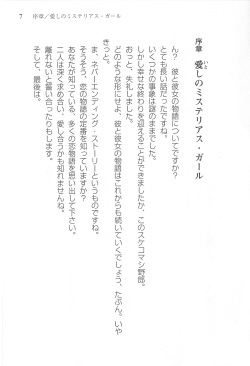 7　序章／愛しのミステリアス・ガール
序章　愛しのミステリアス・ガール
ん？　彼と彼女の物語についてですか？
とても長い話だったですね。
いくつかの事象は謎のままでした。
しかし幸せな終わりを迎えることができましたか、このスケコマシ野郎。
おっと、失礼しました。
どのような形にせよ、彼と彼女の物語はこれからも続いていくでしょう、たぶん。いや
きっと。
ま、ネバーエンディング　ストーリーというものですね。
そうそう、恋の物語の定番を知っていますか？
あなたが知っている、多くの恋物語を思い出して下さい。
二人は深く求め合い、愛し合うかも知れませんね。
離れないと誓ったりもします。
そして、罵り合ったりもします。